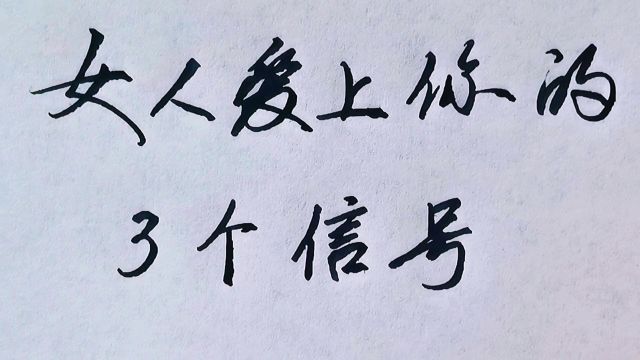 女人爱上你的
3个信号